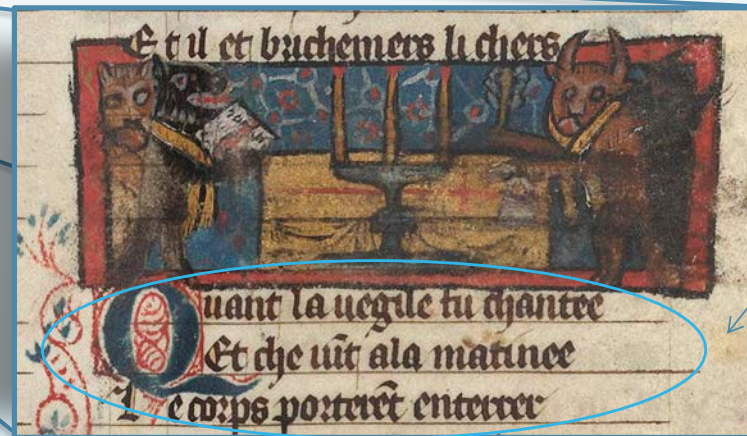 Et il et brichemers li chers
Quant la uegile fu chantee
Et che uīt ala matinee
Le corps porterēt enterrer